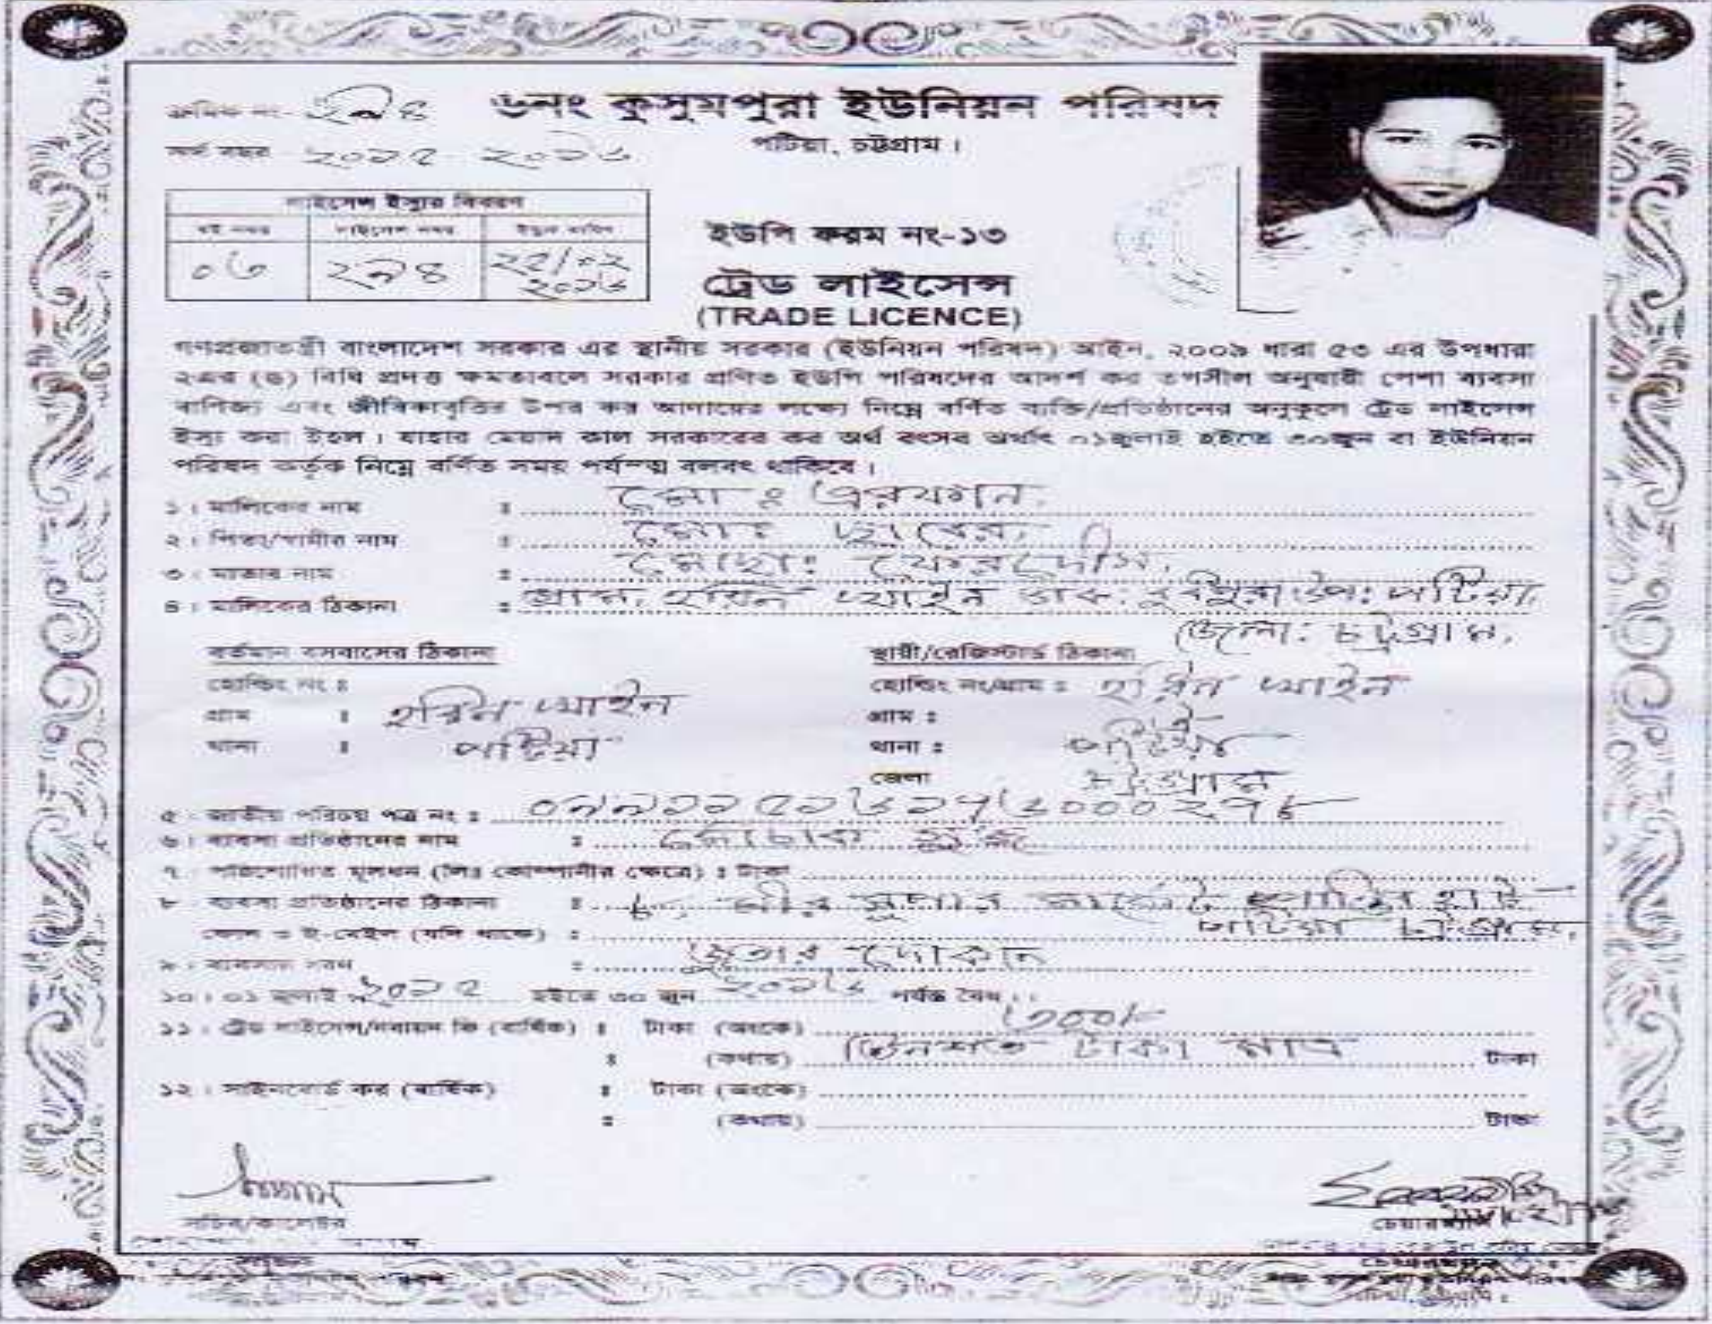 ক্রমিক নং- ২৯৪
৬নং কুসুমপুরা ইউনিয়ন পরিষদ
অর্থ বছর ২০১৫ - ২০১৬
পটিয়া, চট্টগ্রাম।
লাইসেন্স ইস্যুর বিবরণ
বই নম্বর লাইসেন্স নম্বর ইস্যুর তারিখ
০৩ ২৯৪ ২২/০২ ২০১৬
ইউপি ফরম নং-১৩
ট্রেড লাইসেন্স
(TRADE LICENCE)
গণপ্রজাতন্ত্রী বাংলাদেশ সরকার এর স্থানীয় সরকার (ইউনিয়ন পরিষদ) আইন, ২০০৯ ধারা ৫৩ এর উপধারা
২এর (৬) বিধি প্রদত্ত ক্ষমতাবলে সরকার প্রণিত ইউপি পরিষদের আদর্শ কর তপসীল অনুযায়ী পেশা ব্যবসা
বাণিজ্য এবং জীবিকাবৃত্তির উপর কর আদায়ের লক্ষ্যে নিম্নে বর্ণিত ব্যক্তি/প্রতিষ্ঠানের অনুকূলে ট্রেড লাইসেন্স
ইস্যু করা ইহল। যাহার মেয়াদ কাল সরকারের কর অর্থ বৎসর অর্থাৎ ০১জুলাই হইতে ৩০জুন বা ইউনিয়ন
পরিষদ কর্তৃক নিম্নে বর্ণিত সময় পর্যন্ত বলবৎ থাকিবে।
১। মালিকের নাম ঃ মোঃ এরফান
২। পিতা/স্বামীর নাম ঃ মোঃ ছাবের
৩। মাতার নাম ঃ মোছাঃ ফেরদৌস
৪। মালিকের ঠিকানা ঃ গ্রাম, হরিন খাইন ডাক: বুধপুরা উপ: পটিয়া,
জেলা: চট্টগ্রাম,
বর্তমান বসবাসের ঠিকানা
স্থায়ী/রেজিস্টার্ড ঠিকানা
হোল্ডিং নং ঃ
হোল্ডিং নং/গ্রাম ঃ হরিন খাইন
গ্রাম ঃ হরিন খাইন
গ্রাম ঃ
থানা ঃ পটিয়া
থানা ঃ পটিয়া
জেলা চট্টগ্রাম
৫। জাতীয় পরিচয় পত্র নং ঃ
৬। ব্যবসা প্রতিষ্ঠানের নাম ঃ মৌচাক সুজ
৭। পরিশোধিত মূলধন (লিঃ কোম্পানীর ক্ষেত্রে) ঃ টাকা
৮। ব্যবসা প্রতিষ্ঠানের ঠিকানা ঃ মীর সুপার মার্কেট শান্তির হাট
পটিয়া চট্টগ্রাম,
ফোন ও ই-মেইল (যদি থাকে) ঃ
৯। ব্যবসার ধরণ ঃ জুতার দোকান
১০। ০১ জুলাই ২০১৫ হইতে ৩০ জুন ২০১৬ পর্যন্ত বৈধ।
১১। ট্রেড লাইসেন্স/নবায়ন ফি (বার্ষিক) ঃ টাকা (অংকে) ৩০০/-
ঃ (কথায়) তিনশত টাকা মাত্র টাকা
১২। সাইনবোর্ড কর (বার্ষিক) ঃ টাকা (অংকে)
ঃ (কথায়) টাকা
সচিব/কালেক্টর
চেয়ারম্যান
চেয়ারম্যান